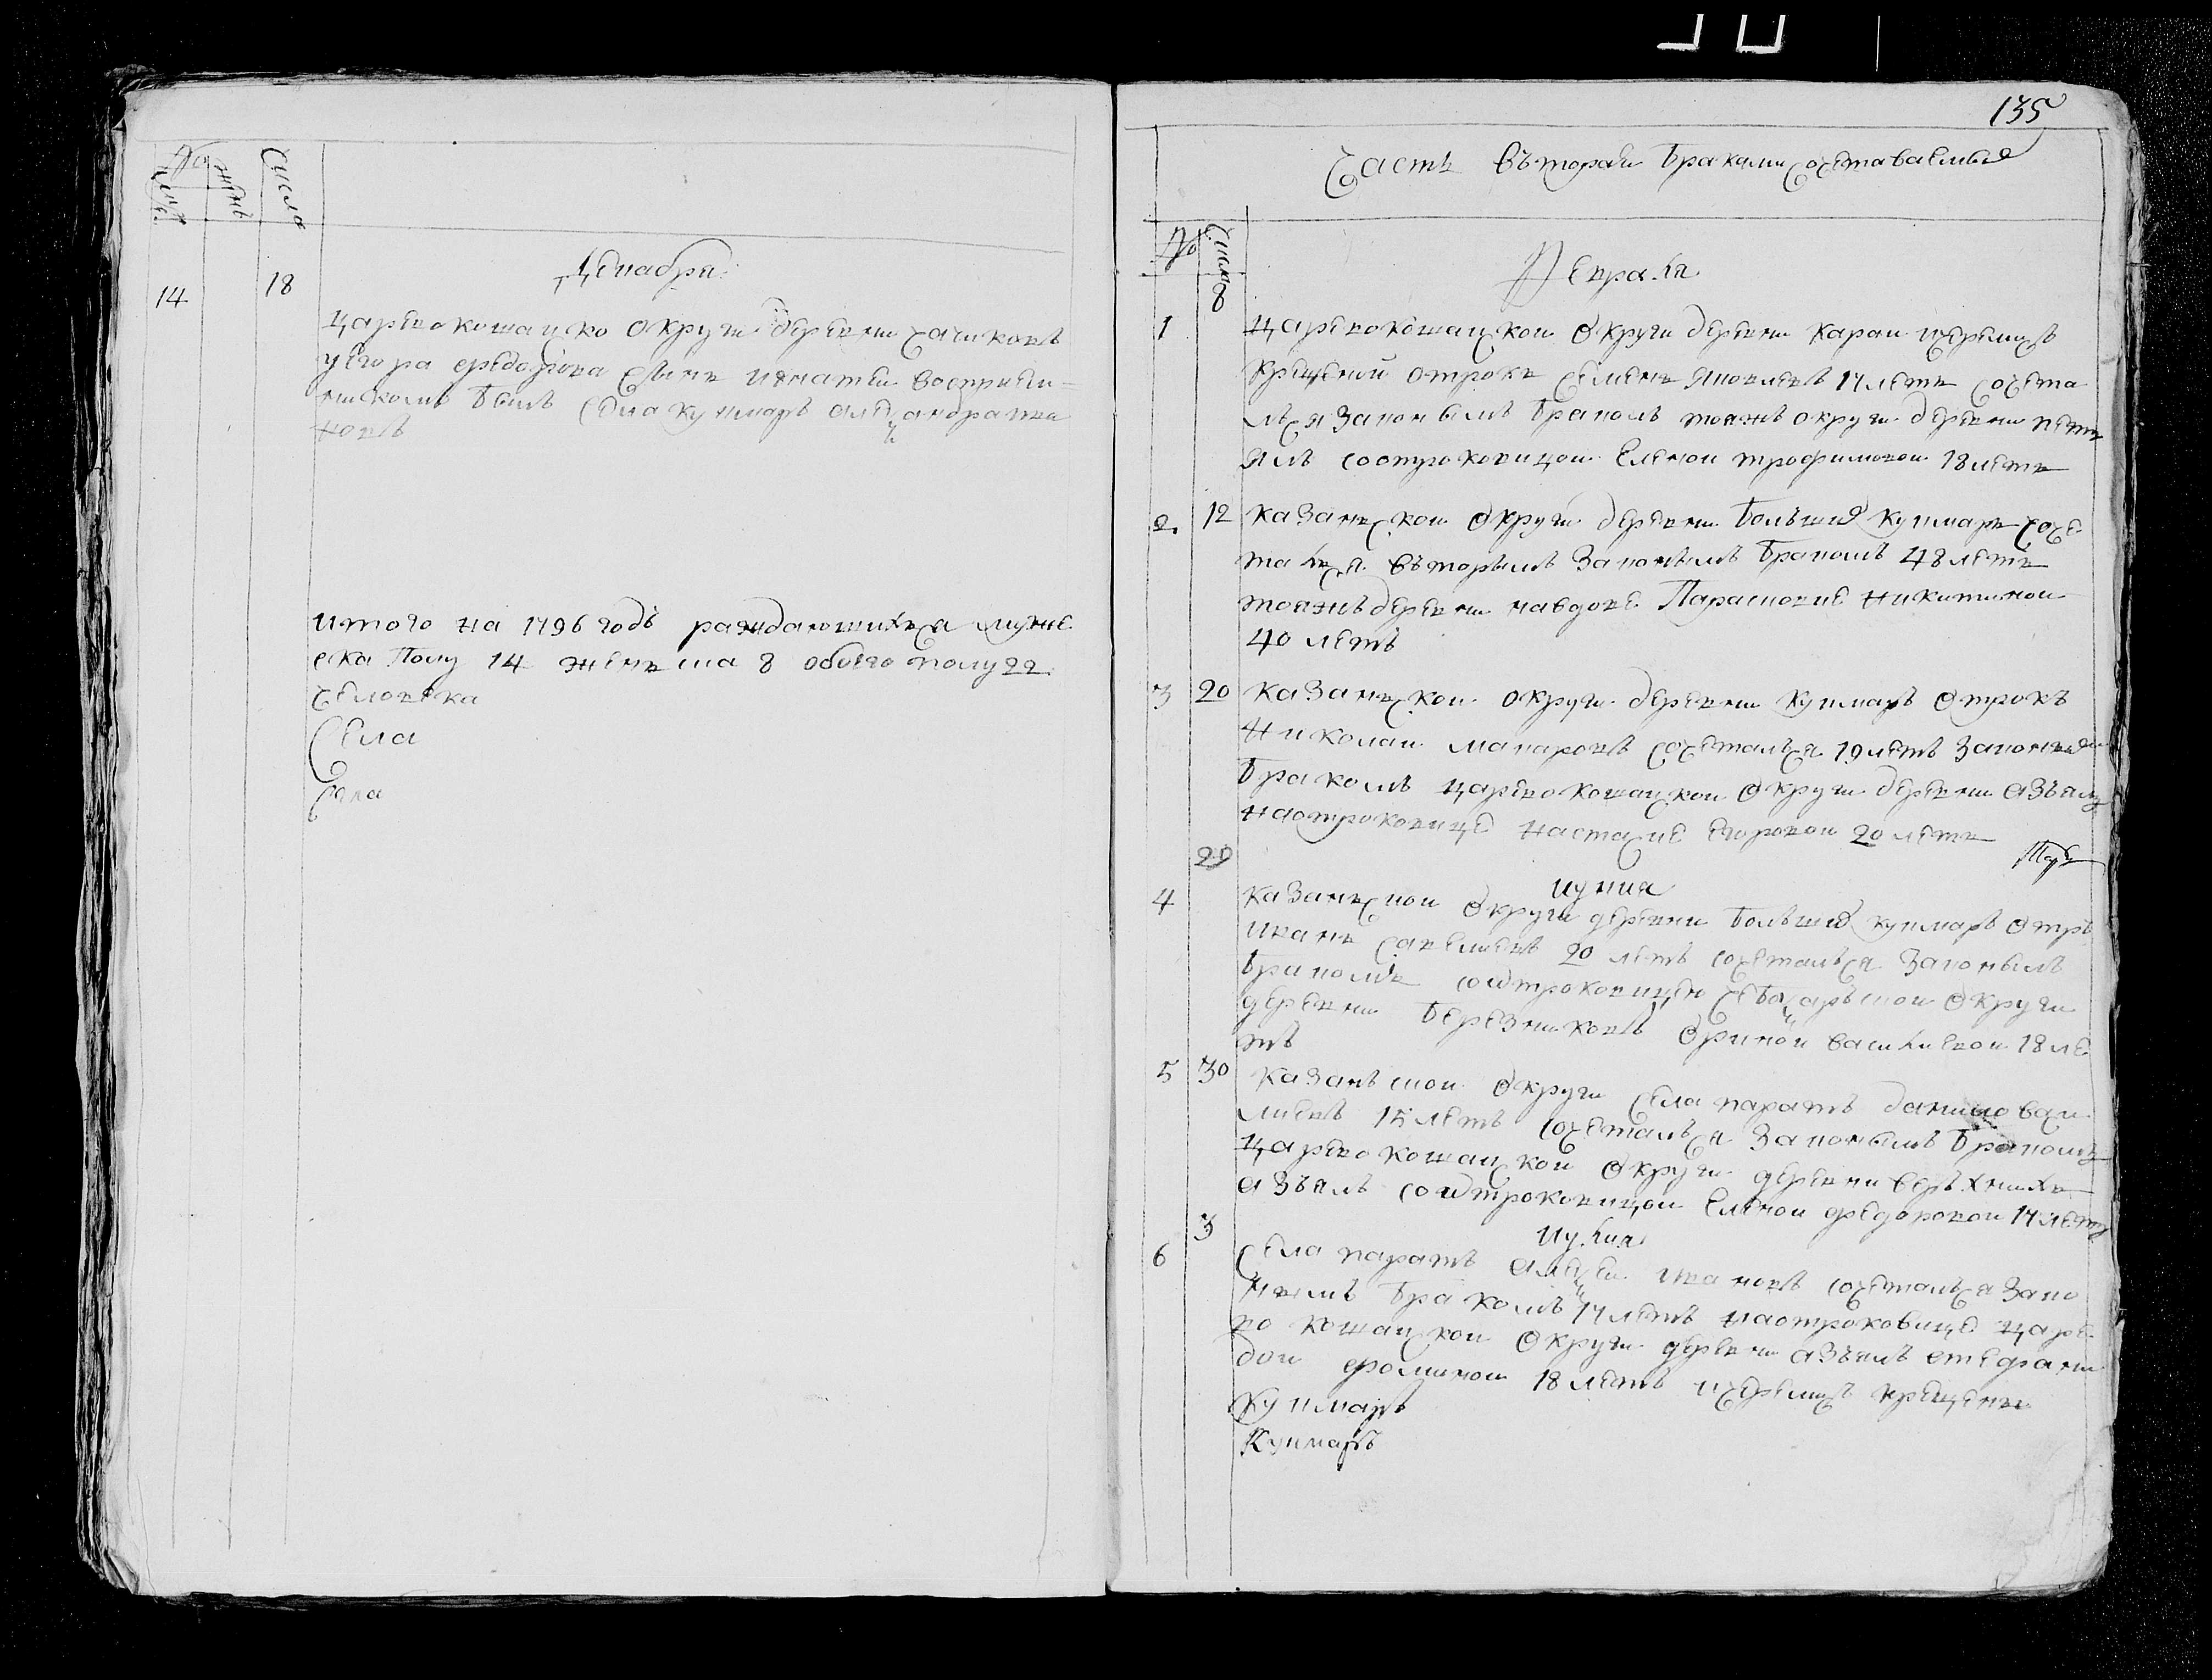 135
No муж.
женъ
Числа
Декабря
14
18
Царевококшацко округи деревни Чашковъ
у Егора Федорова сынъ Игнатей восприем-
никомъ былъ села Кушмаръ
новъ
итого на 1796 годъ раждающихся муже
ска полу 14 женъска 8 обоего полу 22
человека
Села
Села
Часть въторая браками сочетаваемые
No
Числа
Февраля
8
1
Царевококшацкои округи деревни Караи ичеремисъ
крещеной отрокъ Семенъ Яковлевъ 17 летъ сочета
лься законымъ бракомъ тояжъ округи деревни
ялъ соотроковицои Еленои Трофимовои 18 летъ
2.
12
Казанъскои округи деревни Большие Кушмаръ соче
талъся въторымъ законымъ бракомъ 48 летъ
тояжъ деревни навдове Парасковие Никитинои
40 летъ
3
20
Казанъскои округи деревни Кушмаръ отрокъ
Николаи Макаровъ сочеталься 19 летъ законъным
бракомъ Царевококшацкои округи деревни Азъялъ
наотроковице Настасие Егоровои 20 летъ
29
иуния
4
Казанъскои округи деревни Большие Кушмаръ отръ
Иванъ Савелиевъ 20 летъ сочеталься законымъ
бракомъ соотроковицею Чебоксарьскои округи
деревни Березниковъ Ориной Василиевои 18 ле
тъ
5
30
Казаньскои округи села Паратъ Данило Васи
лиевъ 15 летъ сочеталься законымъ бракомъ
Царевококшацкои округи деревни Верьхнихъ
Азъялъ соотроковицои Еленои Федоровои 17 летъ
3
иулия
6
Села Паратъ Алексеи Ивановъ сочеталься зако
нымъ бракомъ 17 летъ наотроковице Царе
вококшацкои округи деревни Азъялъ Стефани
дои Фоминои 18 летъ ичеремисъ крещенъ
Кушмаръ
Кушмаръ